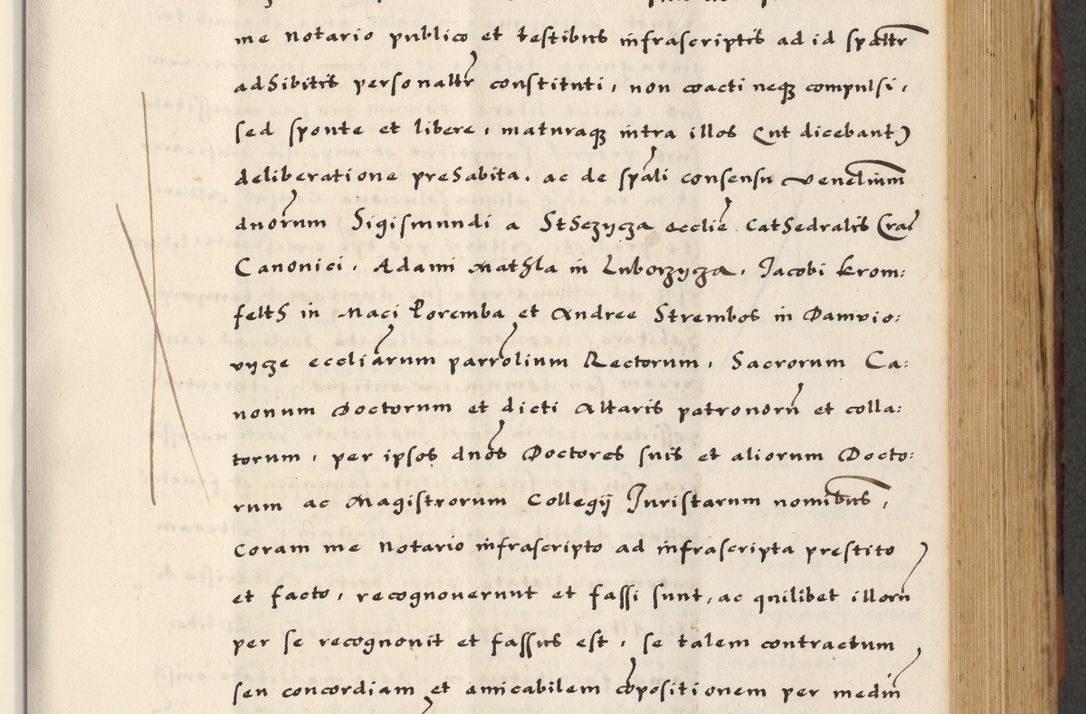 me notario publico et testibus infrascriptis ad id spālr
adhibitis personalr constituti, non coacti neqꝫ compulsi,
sed sponte et libere, maturaqꝫ intra illos (ut dicebant)
deliberatione prehabita, ac de spāli consensu Venelium
dnorum Sigismundi a Sthczycza ecclie Cathedralis Cra
Canonici, Adami Mathla in Luborzycza, Jacobi krom:
felth in Maci Poremba et Andree Strembos in Damvio:
vycze eccliarum parrolium Rectorum, Sacrorum Ca:
nonum Doctorum et dicti Altaris patronorū et colla:
torum, per ipsos dnos Doctores suis et aliorum Docto:
rum ac Magistrorum Collegij Juristarum nominibus,
Coram me Notario infrascripto ad infrascripta prestito
et facto, recognoverunt et fassi sunt, ac quilibet illorū
per se recognovit et fassus est, se talem contractum
seu concordiam et amicabilem cōpositionem per mediū